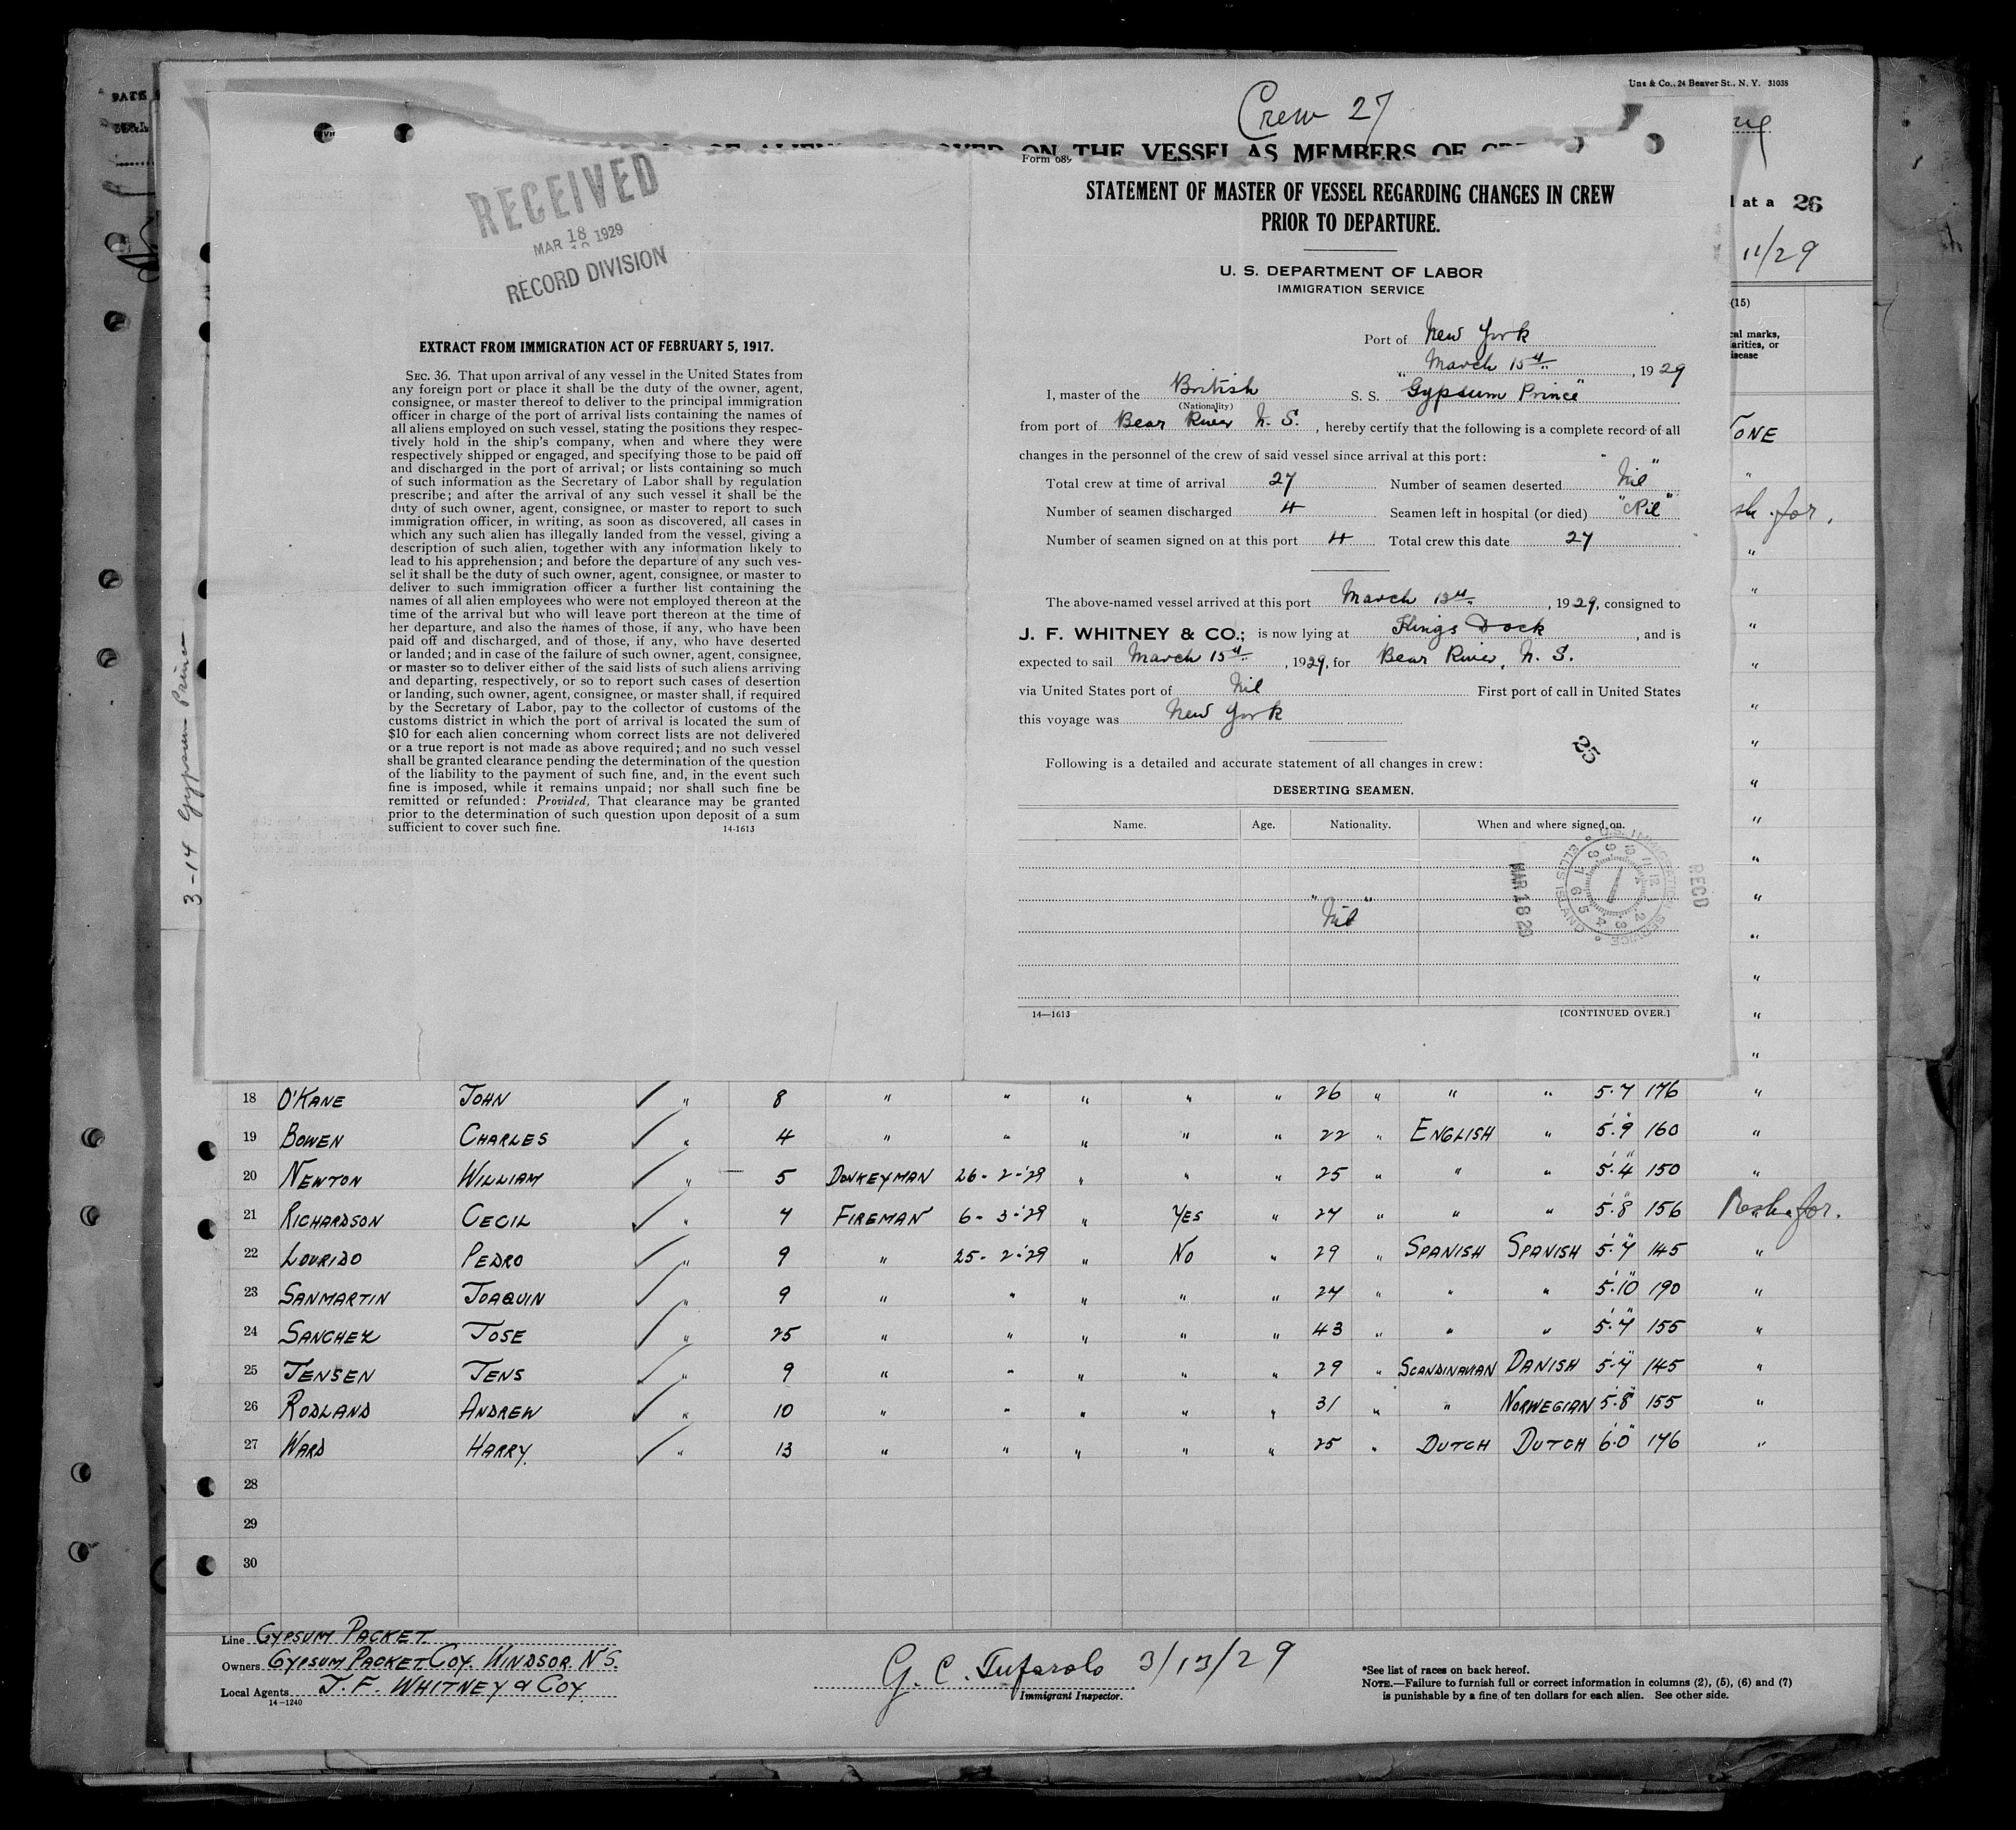 Uns & Co., 24 Beaver St., N. Y. 31038
Crew 27
ON THE VESSEL AS MEMBERS OF
Form 689
at a 26
11/29
(15)
RECEIVED
MAR 18 1929
RECORD DIVISION
EXTRACT FROM IMMIGRATION ACT OF FEBRUARY 5, 1917.
SEC. 36. That upon arrival of any vessel in the United States from
any foreign port or place it shall be the duty of the owner, agent,
consignee, or master thereof to deliver to the principal immigration
officer in charge of the port of arrival lists containing the names of
all aliens employed on such vessel, stating the positions they respec-
tively hold in the ship's company, when and where they were
respectively shipped or engaged, and specifying those to be paid off
and discharged in the port of arrival; or lists containing so much
of such information as the Secretary of Labor shall by regulation
prescribe; and after the arrival of any such vessel it shall be the
duty of such owner, agent, consignee, or master to report to such
immigration officer, in writing, as soon as discovered, all cases in
which any such alien has illegally landed from the vessel, giving a
description of such alien, together with any information likely to
lead to his apprehension; and before the departure of any such ves-
sel it shall be the duty of such owner, agent, consignee, or master to
deliver to such immigration officer a further list containing the
names of all alien employees who were not employed thereon at the
time of the arrival but who will leave port thereon at the time of
her departure, and also the names of those, if any, who have been
paid off and discharged, and of those, if any, who have deserted
or landed; and in case of the failure of such owner, agent, consignee,
or master so to deliver either of the said lists of such aliens arriving
and departing, respectively, or so to report such cases of desertion
or landing, such owner, agent, consignee, or master shall, if required
by the Secretary of Labor, pay to the collector of customs of the
customs district in which the port of arrival is located the sum of
$10 for each alien concerning whom correct lists are not delivered
or a true report is not made as above required; and no such vessel
shall be granted clearance pending the determination of the question
of the liability to the payment of such fine, and, in the event such
fine is imposed, while it remains unpaid; nor shall such fine be
remitted or refunded: Provided, That clearance may be granted
prior to the determination of such question upon deposit of a sum
sufficient to cover such fine. 14-1613
3-14 Gypsum Prince
STATEMENT OF MASTER OF VESSEL REGARDING CHANGES IN CREW
PRIOR TO DEPARTURE.
U. S. DEPARTMENT OF LABOR
IMMIGRATION SERVICE
Port of New York
March 15th, 1929
I, master of the British S. S. "Gypsum Prince"
(Nationality)
from port of Bear River N. S., hereby certify that the following is a complete record of all
changes in the personnel of the crew of said vessel since arrival at this port:
Total crew at time of arrival 27 Number of seamen deserted "Nil"
Number of seamen discharged 4 Seamen left in hospital (or died) "Nil"
Number of seamen signed on at this port 4 Total crew this date 27
The above-named vessel arrived at this port March 13th, 1929, consigned to
J. F. WHITNEY & CO.; is now lying at Flings Dock, and is
expected to sail March 15th, 1929, for Bear River, N. S.
via United States port of Nil First port of call in United States
this voyage was New York
25
Following is a detailed and accurate statement of all changes in crew:
DESERTING SEAMEN.
Name. Age. Nationality. When and where signed on.
"Nil"
U.S. IMMIGRATION SERVICE ELLIS ISLAND
MAR 18 29
RECD
14—1613 [CONTINUED OVER.]
18 O'KANE JOHN ✓ " 8 " " " " " 26 " " " 5.7 176 "
19 BOWEN CHARLES ✓ " 4 " " " " " 22 " ENGLISH " 5.9 160 "
20 NEWTON WILLIAM ✓ " 5 DONKEYMAN 26-2-29 " " " 25 " " " 5.4 150 "
21 RICHARDSON CECIL ✓ " 7 FIREMAN 6-3-29 " YES " 27 " " " 5.8 156
22 LOURIDO PEDRO ✓ " 9 " 25-2-29 " NO " 29 " SPANISH SPANISH 5.7 145 "
23 SANMARTIN JOAQUIN ✓ " 9 " " " " " 27 " " " 5.10 190 "
24 SANCHEZ JOSE ✓ " 25 " " " " " 43 " " " 5.7 155 "
25 JENSEN JENS ✓ " 9 " " " " " 29 " SCANDINAVIAN DANISH 5.7 145 "
26 RODLAND ANDREW ✓ " 10 " " " " " 31 " " NORWEGIAN 5.8 155 "
27 WARD HARRY. ✓ " 13 " " " " " 25 " DUTCH DUTCH 6.0 176 "
28
29
30
Line GYPSUM PACKET
Owners GYPSUM PACKET COY. WINDSOR. N.S.
Local Agents J. F. WHITNEY & COY.
14-1240
G. C. Tufarolo 3/13/29
Immigrant Inspector.
*See list of races on back hereof.
NOTE.—Failure to furnish full or correct information in columns (2), (5), (6) and (7)
is punishable by a fine of ten dollars for each alien. See other side.